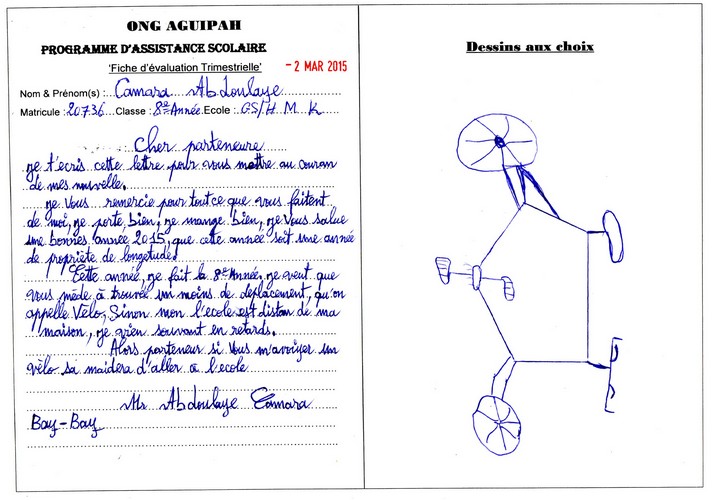 ONG AGUIPAH
PROGRAMME D'ASSISTANCE SCOLAIRE
'Fiche d'évaluation Trimestrielle'
- 2 MAR 2015
Nom & Prénom(s) : Camara Abdoulaye
Matricule : 20736 Classe : 8e Année Ecole : GS/H M K
Cher parteneure
Je t'ecris cette lettre pour vous mettre au couran
de mes nuivelle.
Je Vous remercie pour tout ce que vous faitent
de moi, je porte bien, je mange bien, je Vous salue
une bonnes année 2015, que cette année soit une année
de propriété de longetude.
Cette année, je fait la 8e Année. je veut que
vous méde à trouvée un moins de deplacement, qu'on
appelle Vélo, Sinon mon l'ecole est distan de ma
maison, je vien souvant en retards.
Alors parteneur si Vous m'avoiyer un
vèlo sa maidera d'aller à l'ecole
Mr Abdoulaye Camara
Bay-Bay
Dessins aux choix